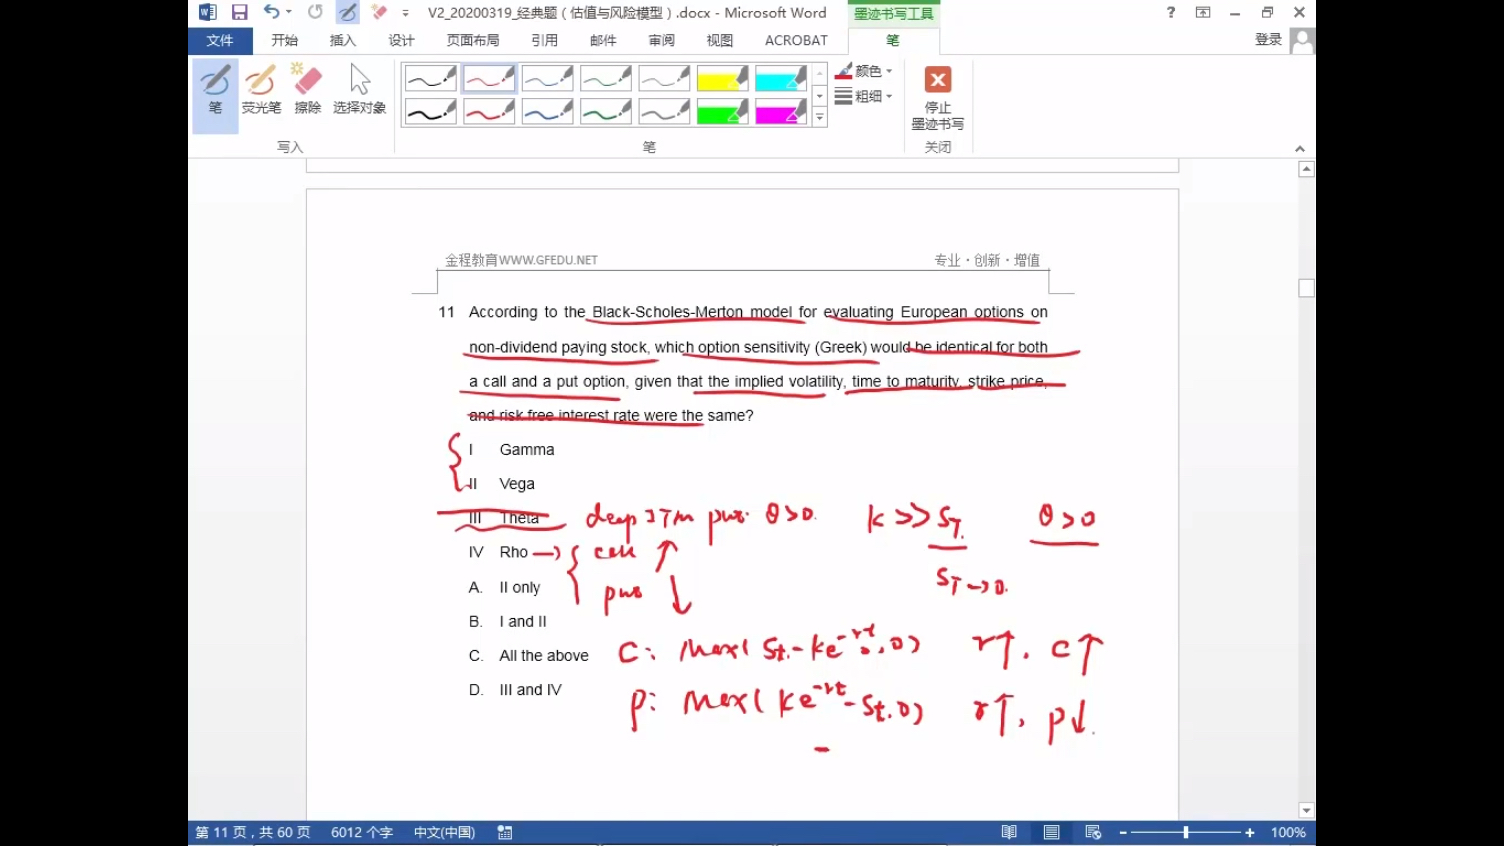 V2_20200319_经典题（估值与风险模型）.docx - Microsoft Word
墨迹书写工具
文件 开始 插入 设计 页面布局 引用 邮件 审阅 视图 ACROBAT 笔 登录
笔 荧光笔 擦除 选择对象 颜色 粗细 停止墨迹书写
写入 笔 关闭
金程教育WWW.GFEDU.NET 专业·创新·增值
11 According to the Black-Scholes-Merton model for evaluating European options on
non-dividend paying stock, which option sensitivity (Greek) would be identical for both
a call and a put option, given that the implied volatility, time to maturity, strike price,
and risk free interest rate were the same?
I Gamma
II Vega
III Theta deep ITM put θ>0. K >> ST. θ>0
IV Rho → { call ↑
ST→0.
A. II only put ↓
B. I and II
C. All the above C: Max(St-Ke^-rt,0) r↑, C↑
D. III and IV P: Max(Ke^-rt-St,0) r↑, P↓
第 11 页，共 60 页 6012 个字 中文(中国) 100%